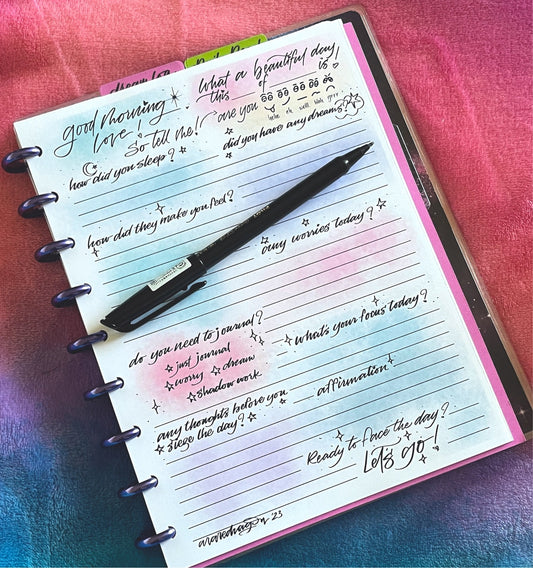 dream log
good morning
love!
So tell me!
What a beautiful day
this of is!
are you
how did you sleep?
did you have any dreams?
how did they make you feel?
any worries today?
do you need to journal?
just journal
worry dream
shadow work
what's your focus today?
affirmation
any thoughts before you
siege the day?
Ready to face the day?
Let's go!
'23